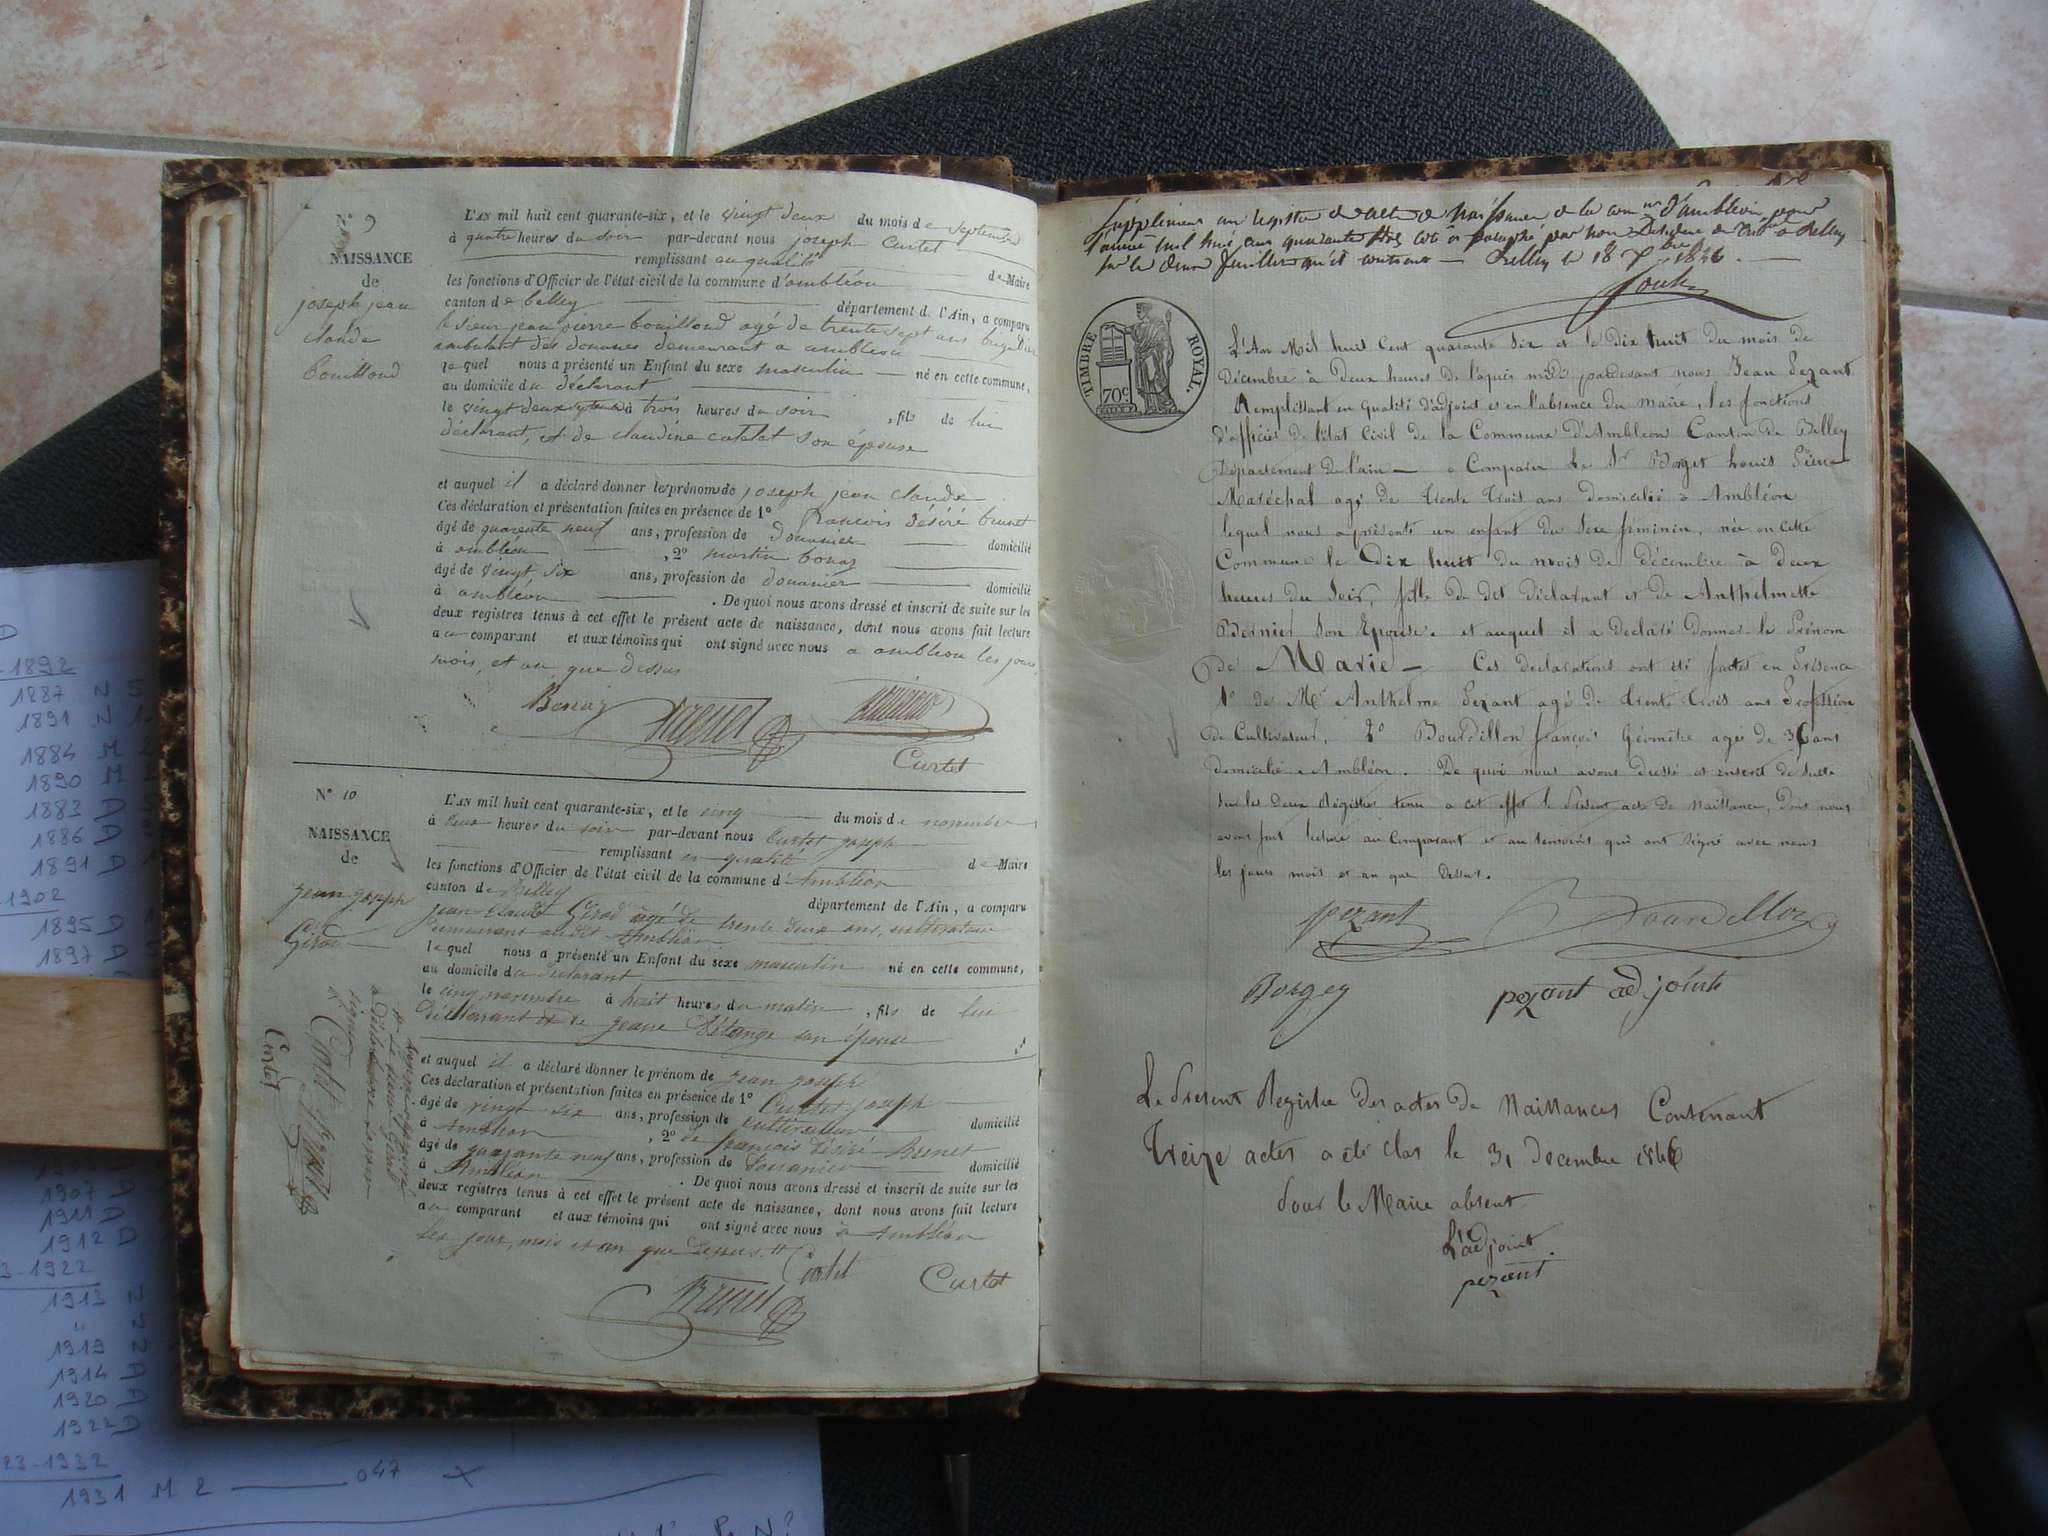 N° 9
NAISSANCE
de
joseph jean
claude
bouilloud
L'AN mil huit cent quarante-six, et le vingt deux du mois de septembre
à quatre heures du soir par-devant nous joseph Curtet
remplissant en qualité de Maire
les fonctions d'Officier de l'état civil de la commune d'ambléon
canton de belley département de l'Ain, a comparu
le sieur jean pierre bouilloud agé de trente sept ans brigadier
ambulant des douanes demeurant a ambleon
lequel nous a présenté un Enfant du sexe masculin né en cette commune,
au domicile du déclarant
le vingt deux septembre à trois heures du soir, fils de lui
déclarant, et de claudine catelat son épouse
et auquel il a déclaré donner les prénoms de joseph jean claude
Ces déclaration et présentation faites en présence de 1° francois Désiré brunet
âgé de quarente neuf ans, profession de douanier domicilié
à ambleon, 2° martin bonaz
âgé de vingt six ans, profession de douanier domicilié
à ambléon. De quoi nous avons dressé et inscrit de suite sur les
deux registres tenus à cet effet le présent acte de naissance, dont nous avons fait lecture
au comparant et aux témoins qui ont signé avec nous a ambléon les jour,
mois, et an que dessus
Curtet
N° 10
NAISSANCE
de
jean joseph
Girod
L'AN mil huit cent quarante-six, et le cinq du mois de novembre
à deux heures du soir par-devant nous Curtet joseph
remplissant en qualité de Maire
les fonctions d'Officier de l'état civil de la commune d'Ambléon
canton de Belley département de l'Ain, a comparu
jean claude Girod agé de trente deux ans, cultivateur
demeurant audit Ambléon
lequel nous a présenté un Enfant du sexe masculin né en cette commune,
au domicile du déclarant
le cinq novembre à huit heures du matin, fils de lui
déclarant et de jeane Délange son épouse
et auquel il a déclaré donner le prénom de jean joseph
Ces déclaration et présentation faites en présence de 1° Curtet joseph
âgé de vingt six ans, profession de cultivateur domicilié
à Ambléon, 2° de françois Désiré Brunet
âgé de quarante neuf ans, profession de Douanier domicilié
à Ambléon. De quoi nous avons dressé et inscrit de suite sur les
deux registres tenus à cet effet le présent acte de naissance, dont nous avons fait lecture
au comparant et aux témoins qui ont signé avec nous à Ambléon
les jour, mois et an que dessus
Curtet
Brunet
Le sieur Girod
a déclaré ne savoir
signer
Curtet
Supplément au registre de acte de Naissance de la comne d'ambléon pour
l'année mil huit cent quarante six coté et paraphé par nous Président du à Belley
sur le deux feuillets qu'il contient Belley le 18 7bre 1846
TIMBRE ROYAL.
70c
L'An Mil huit Cent quarante Six et le Dix huit du mois de
Décembre à Deux heures De l'après midi pardevant nous Jean Pezant
Remplissant en qualité d'adjoint et en l'absence du maire, les fonctions
d'officier De l'état Civil de la Commune D'Ambléon Canton De Belley
Département De l'ain a Comparu Le Sr Borgey Louis Pierre
Maréchal agé de trente trois ans domicilié à Ambléon
lequel nous a présenté un enfant du Sexe féminin, née en Cette
Commune le Dix huit du mois de décembre à deux
heures du Soir, fille De Dit déclarant et de Anthelmette
Bernier Son Epouse. et auquel il a Déclaré Donner le Prénom
De Marie Ces déclarations ont été faites en Présence
1° de Mr Anthelme Pezant agé De trente trois ans Profession
de Cultivateur, 2° Bourdillon françois Géomètre agés de 36 ans
domicilié Ambléon. De quoi nous avons dressé et inscrit de Suite
sur les deux Régistre tenu a cet effet le Présent acte de naissance, Dont nous
avons fait lecture au Comparant et au témoins qui ont Signé avec nous
les jours mois et an que Dessus.
pezant Bourdillon
Borgey pezant adjoint
Le Présent Registre Des actes De Naissances Contenant
treize actes a été clos le 31 Decembre 1846
Pour le Maire absent
L'adjoint
pezant
D
-1892
1887 N 5
1891 N
1884 M
1890 M
1883 D
1886 D
1891 D
-1902
1895 D
1897 D
1907 D
1911 D
1912 D
3-1922
1913 N
" 2
1919 N
1914 D
1920 D
1922 D
23-1932
1931 M 2 047 X